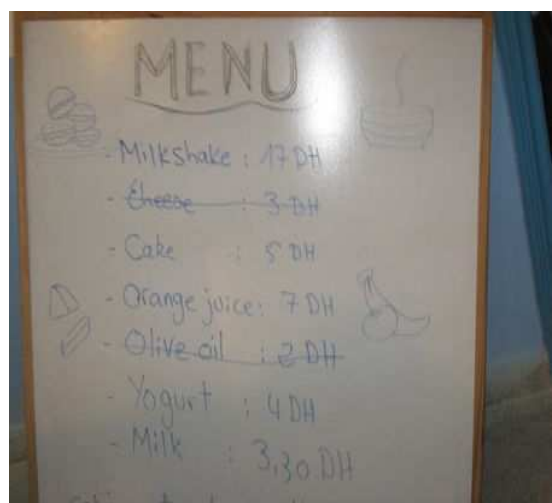 MENU
- Milkshake : 17 DH
- Cheese : 3 DH
- Cake : 5 DH
- Orange juice : 7 DH
- Olive oil : 2 DH
- Yogurt : 4 DH
- Milk : 3,30 DH